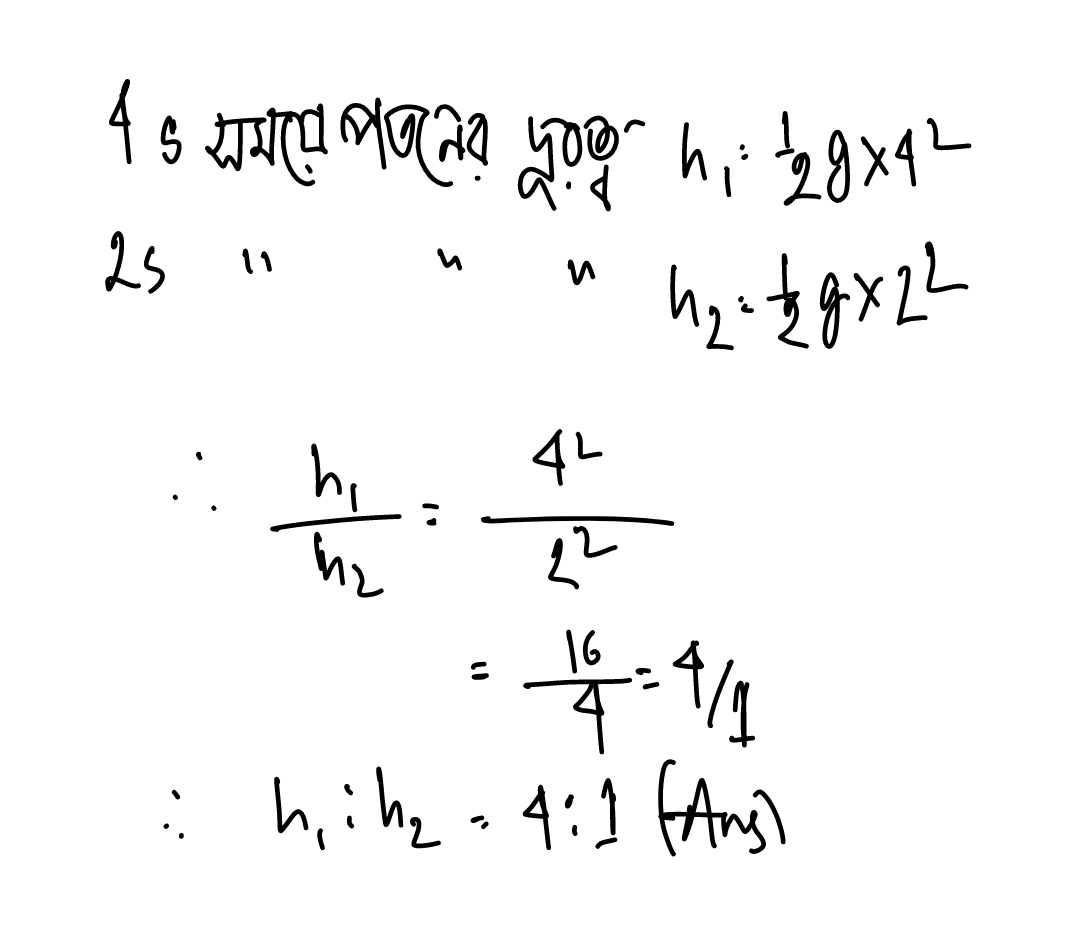 4 s সময়ে পতনের দূরত্ব h₁ = ½ g × 4²
2s " " " h₂ = ½ g × 2²
∴ h₁/h₂ = 4²/2²
= 16/4 = 4/1
∴ h₁ : h₂ = 4 : 1 (Ans)